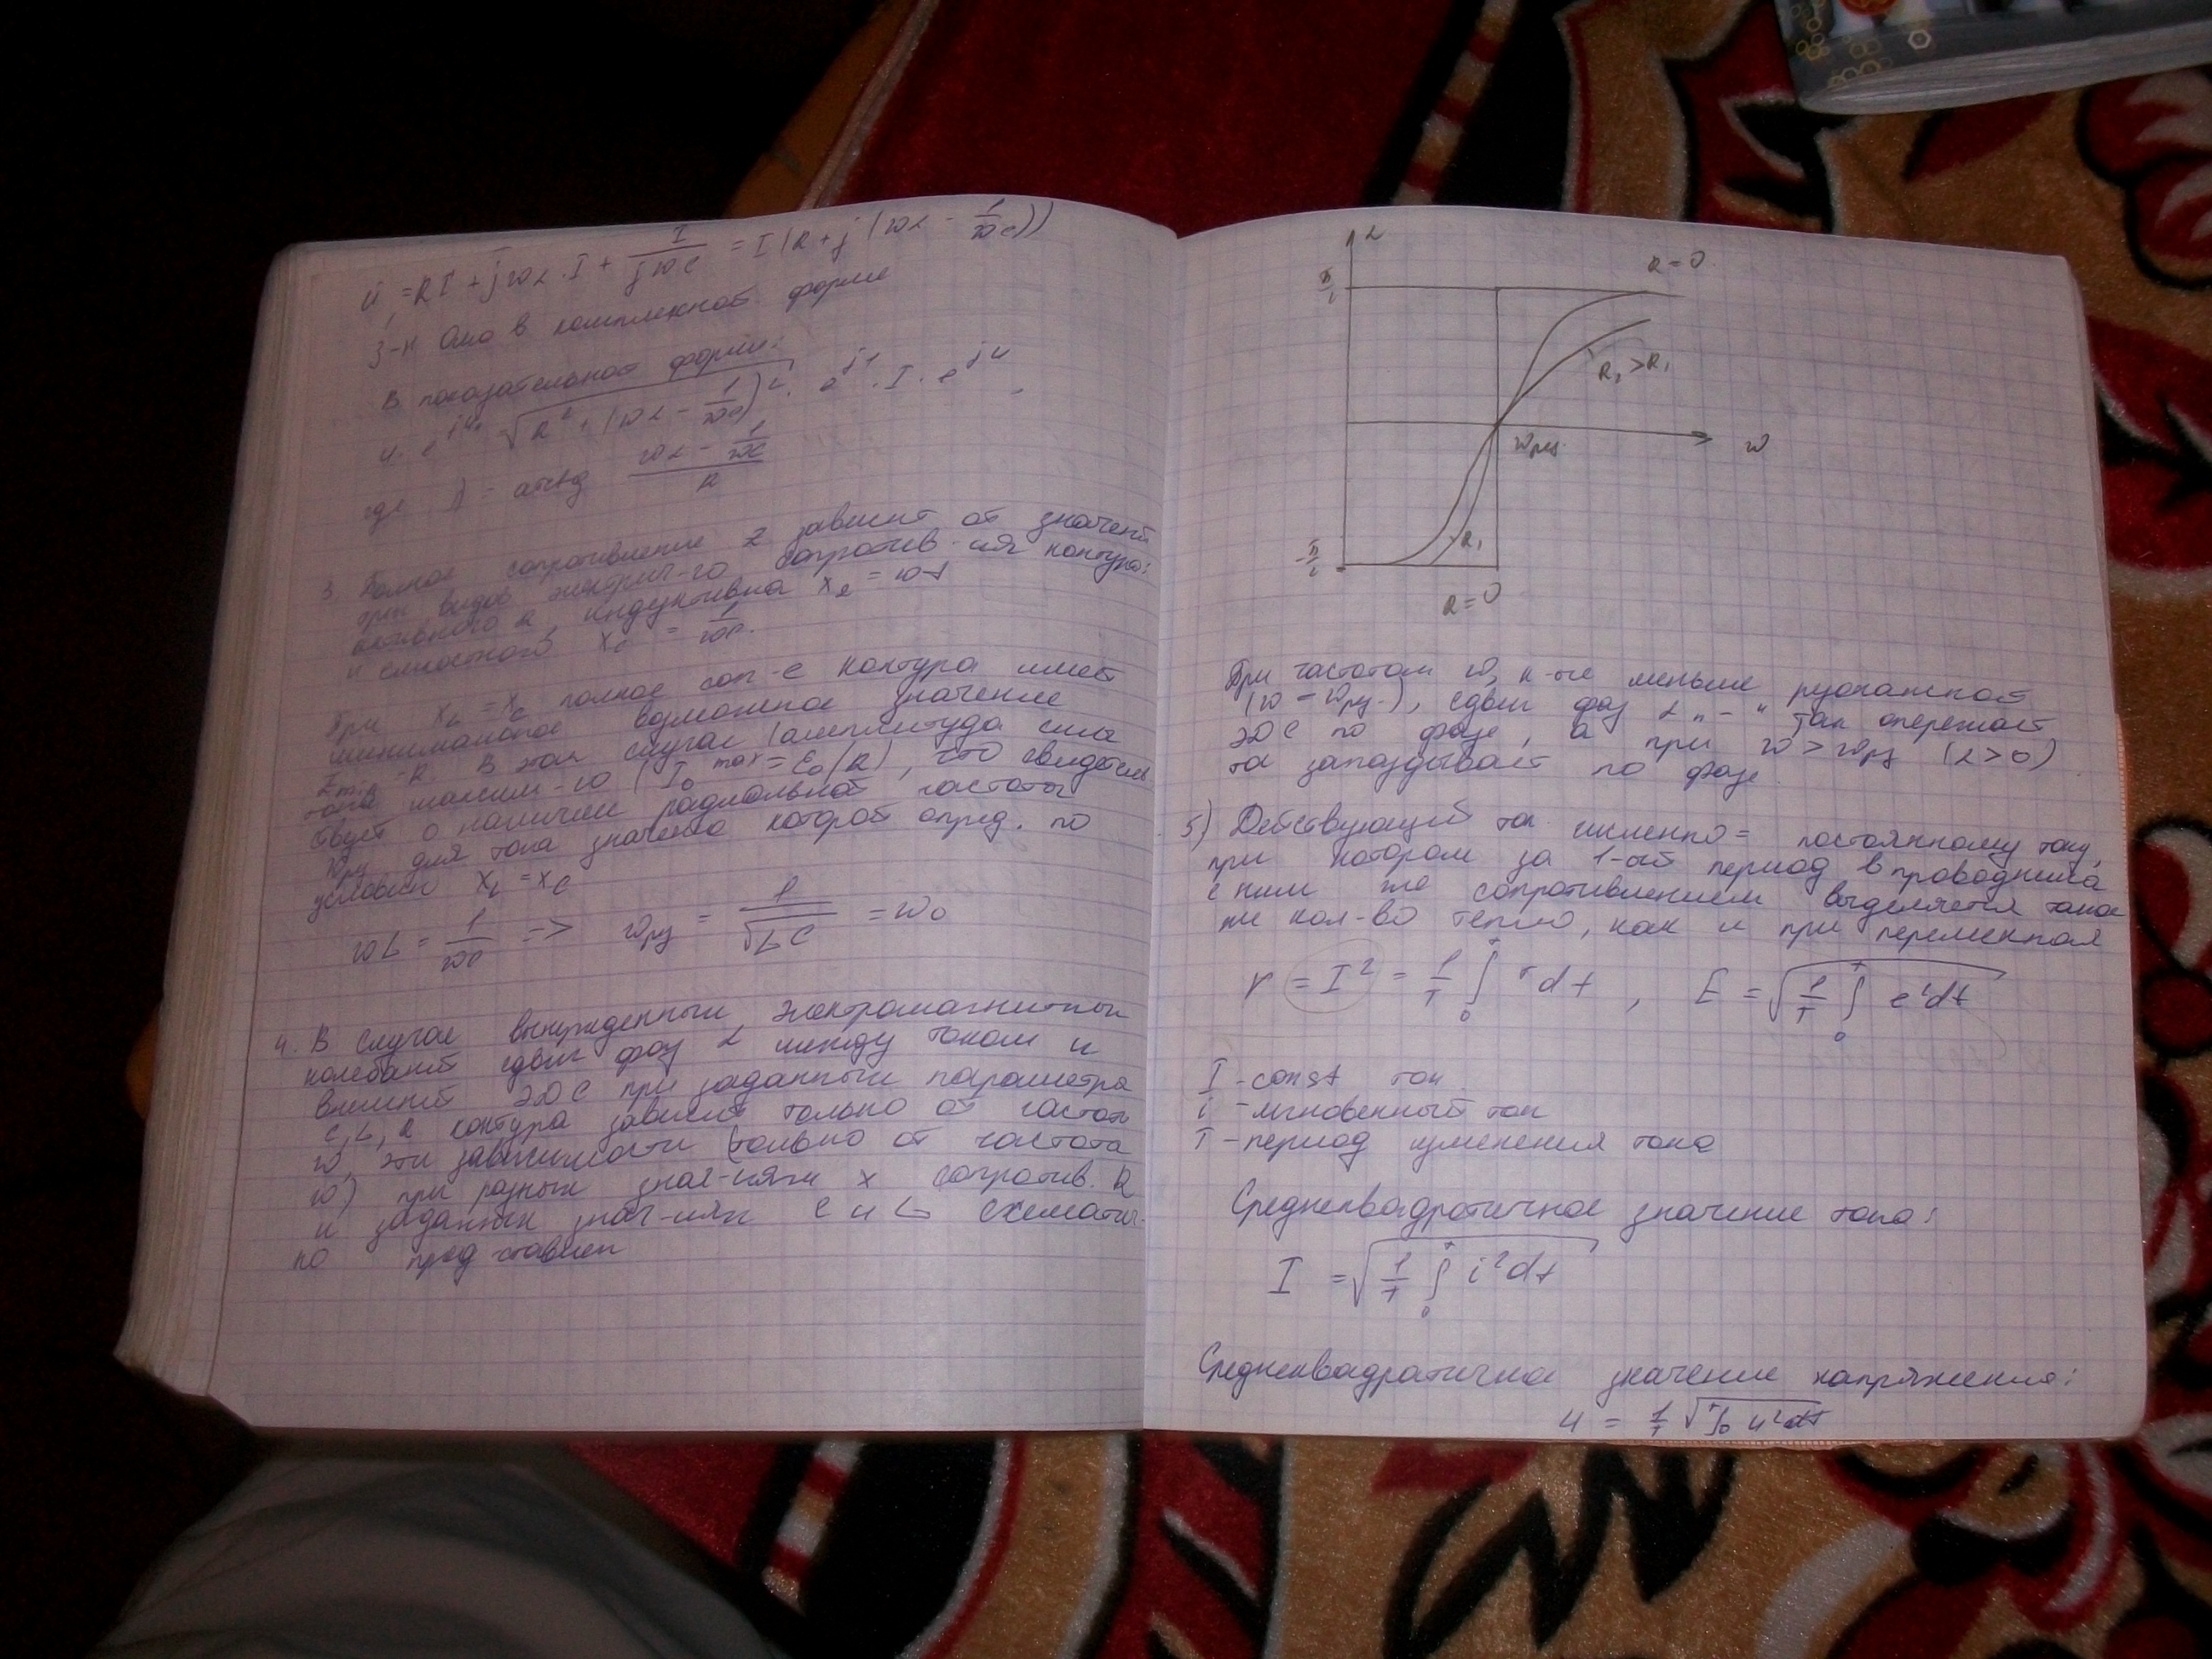 u̇ = RI + jωL · I + I/(jωC) = I(R + j(ωL - 1/(ωC)))
З-н Ома в комплексной форме
В показательной форме:
где γ = arctg (ωL - 1/(ωC))/R
3. Полное сопротивление Z зависит от значений
активного R, индуктивна X_L = ωL
и емкостного X_C = 1/(ωC).
При X_L = X_C полное соп-е контура имеет
минимальное возможное значение
Z_min = R. В этом случае (амплитуда силы
тока максим-ю (I₀ max = ε₀/R), что свидетель
ствует о наличии частоты
ω_рез для тока значение которой опред. по
условию X_L = X_C
ωL = 1/(ωC) => ω_рез = 1/√(LC) = ω₀
4. В случае вынужденных электромагнитных
колебаний сдвиг фаз α между током и
внешней ЭДС при заданных параметра
C, L, R контура зависит только от частоты
ω, эти зависимости (только от частота
ω) при разных знач-иях x сопротив. R
и заданных знач-иях C и L схематич-
но представлен
α
R = 0
π/2
R₂ > R₁
ω_рез.
ω
R₁
-π/2
R = 0
При частотах ω, к-ые меньше
(ω - ω_рез.), сдвиг фаз α „-" ток опережает
ЭДС по фазе, а при ω > ω_рез (α > 0)
ток запаздывает по фазе.
5) Действующий ток численно = постоянному току,
при котором за 1-ый период в проводника
с ним же сопротивлением выделяется такое
же кол-во тепло, как и при переменном
r = I² = 1/T ∫₀ᵀ r dt , E = √(1/T ∫₀ᵀ e²dt)
I - const ток
i - мгновенный ток
T - период изменения тока
Среднеквадратичное значение тока:
I = √(1/T ∫₀ᵀ i²dt)
Среднеквадратична значение напряжения:
u = 1/T √(∫₀ᵀ u²dt)